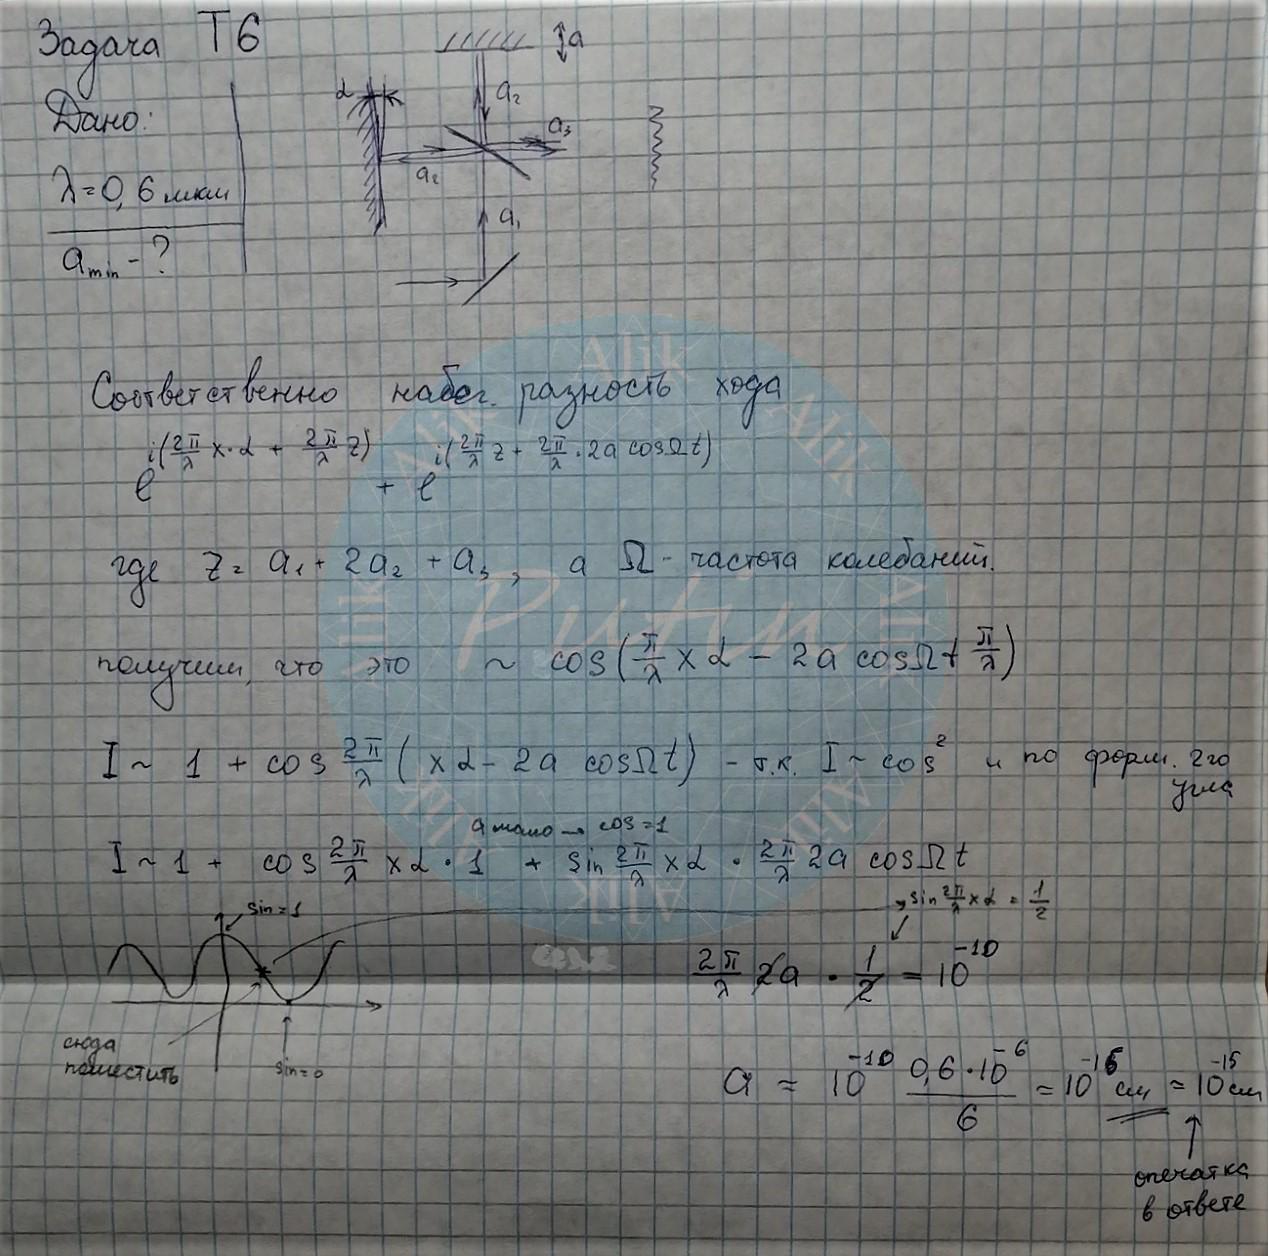 Задача T6
Дано:
λ = 0,6 мкм
a min - ?
α
a
a₂
a₃
a₂
a₁
Соответственно набег. разность хода
e^{i(2π/λ x·α + 2π/λ z)} + e^{i(2π/λ z + 2π/λ · 2a cosΩt)}
где z = a₁ + 2a₂ + a₃, а Ω - частота колебаний.
получим, что это ~ cos(π/λ xα - 2a cosΩt π/λ)
I ~ 1 + cos 2π/λ (xα - 2a cosΩt) - т.к. I ~ cos² и по форм. 2го
угла
a мало → cos = 1
I ~ 1 + cos 2π/λ xα · 1 + sin 2π/λ xα · 2π/λ 2a cosΩt
sin = 1
sin 2π/λ xα = 1/2
2π/λ 2a · 1/2 = 10⁻¹⁰
сюда
поместить
sin = 0
a = 10⁻¹⁰ 0,6·10⁻⁶/6 = 10⁻¹⁶ см = 10⁻¹⁵ см
опечатка
в ответе
Alik
Putin